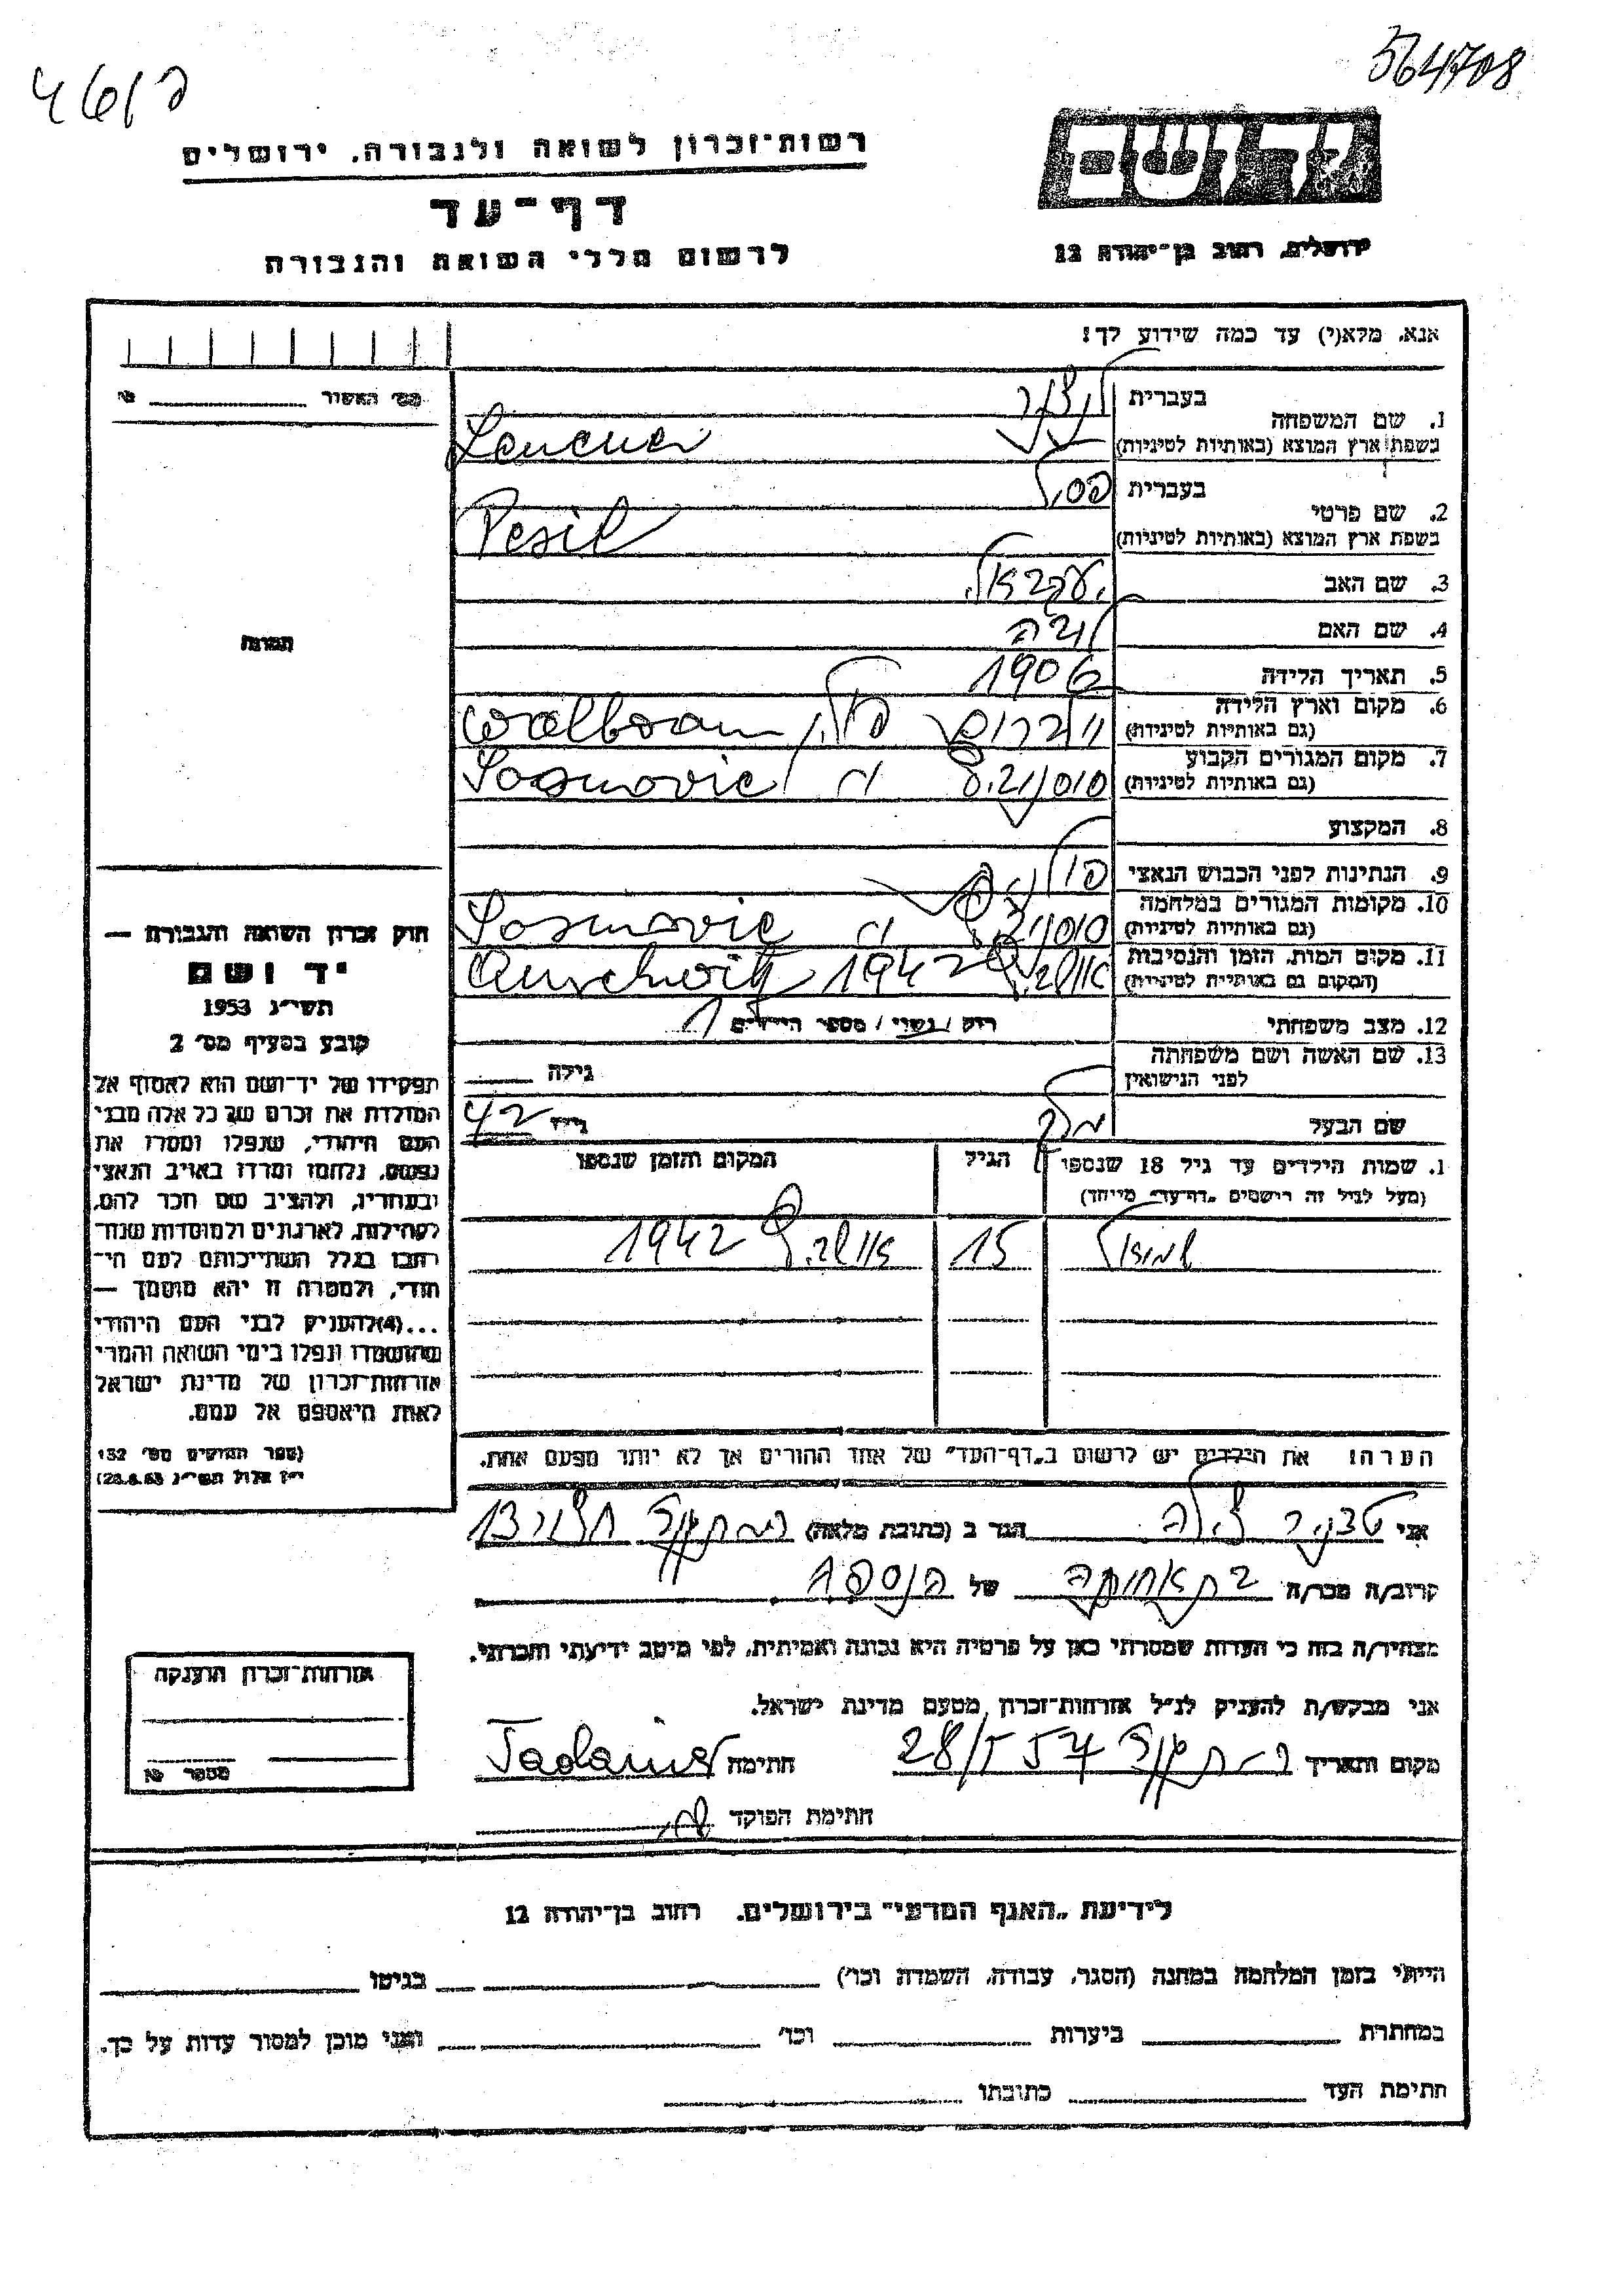 564708
רשות־זכרון לשואה ולגבורה, ירושלים
דף־עד
לרשום חללי השואה והגבורה
ירושלים, רחוב בן־יהודה 12
אנא, מלא(י) עד כמה שידוע לך!
מס׳ האשור
1. שם המשפחה
בעברית
בשפת ארץ המוצא (באותיות לטיניות)
2. שם פרטי
בעברית פסיל
בשפת ארץ המוצא (באותיות לטיניות) Pesil
3. שם האב
4. שם האם
5. תאריך הלידה 1906
6. מקום וארץ הלידה
(גם באותיות לטיניות) וולברום פולין Wolbrom
7. מקום המגורים הקבוע
(גם באותיות לטיניות) סוסנוביץ Sosnovic
תמונה
8. המקצוע
9. הנתינות לפני הכבוש הנאצי פולנית
10. מקומות המגורים במלחמה
(גם באותיות לטיניות) סוסנוביץ Sosnovic
11. מקום המות, הזמן והנסיבות
(המקום גם באותיות לטיניות) אושביץ 1942 Auschwitz
12. מצב משפחתי רוק / נשוי / מספר הילדים 1
13. שם האשה ושם משפחתה
לפני הנישואין גילה
שם הבעל גילו 42
1. שמות הילדים עד גיל 18 שנספו
(מעל לגיל זה רושמים „דף־עד״ מיוחד)
הגיל
המקום והזמן שנספו
שמואל 15 אושביץ 1942
הערה: את הילדים יש לרשום ב„דף־העד״ של אחד ההורים אך לא יותר מפעם אחת.
חוק זכרון השואה והגבורה —
יד ושם
תשי״ג 1953
קובע בסעיף מס׳ 2
תפקידו של יד־ושם הוא לאסוף אל
המולדת את זכרם של כל אלה מבני
העם היהודי, שנפלו ומסרו את
נפשם, נלחמו ומרדו באויב הנאצי
ובעוזריו, ולהציב שם וזכר להם,
לקהילות, לארגונים ולמוסדות שנח־
רבו בגלל השתייכותם לעם הי־
הודי, ולמטרה זו יהא מוסמך —
...(4) להעניק לבני העם היהודי
שהושמדו ונפלו בימי השואה והמרי
אזרחות־זכרון של מדינת ישראל
לאות היאספם אל עמם.
(ספר החוקים מס׳ 132
י״ז אלול תשי״ג 28.8.53)
אני הגר ב (כתובת מלאה)
קרוב/ה מכר/ה בת אחותה של הנספה
מצהיר/ה בזה כי העדות שמסרתי כאן על פרטיה היא נכונה ואמיתית, לפי מיטב ידיעתי והכרתי.
אני מבקש/ת להעניק לנ״ל אזרחות־זכרון מטעם מדינת ישראל.
מקום ותאריך חתימה
חתימת הפוקד
אזרחות־זכרון הוענקה
מספר
לידיעת „האגף המדעי״ בירושלים, רחוב בן־יהודה 12
הייתי בזמן המלחמה במחנה (הסגר, עבודה, השמדה וכו׳) בגיטו
במחתרת ביערות וכו׳ ואני מוכן למסור עדות על כך.
חתימת העד כתובתו